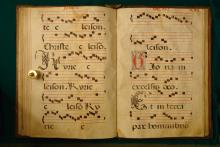 te c leison.
Christe c leiso.
Kyrie c
leison. Kyrie
c leiso. Ky
rie c
leison.
Gloria in
excelsis deo.
Et in terra
pax hominibus